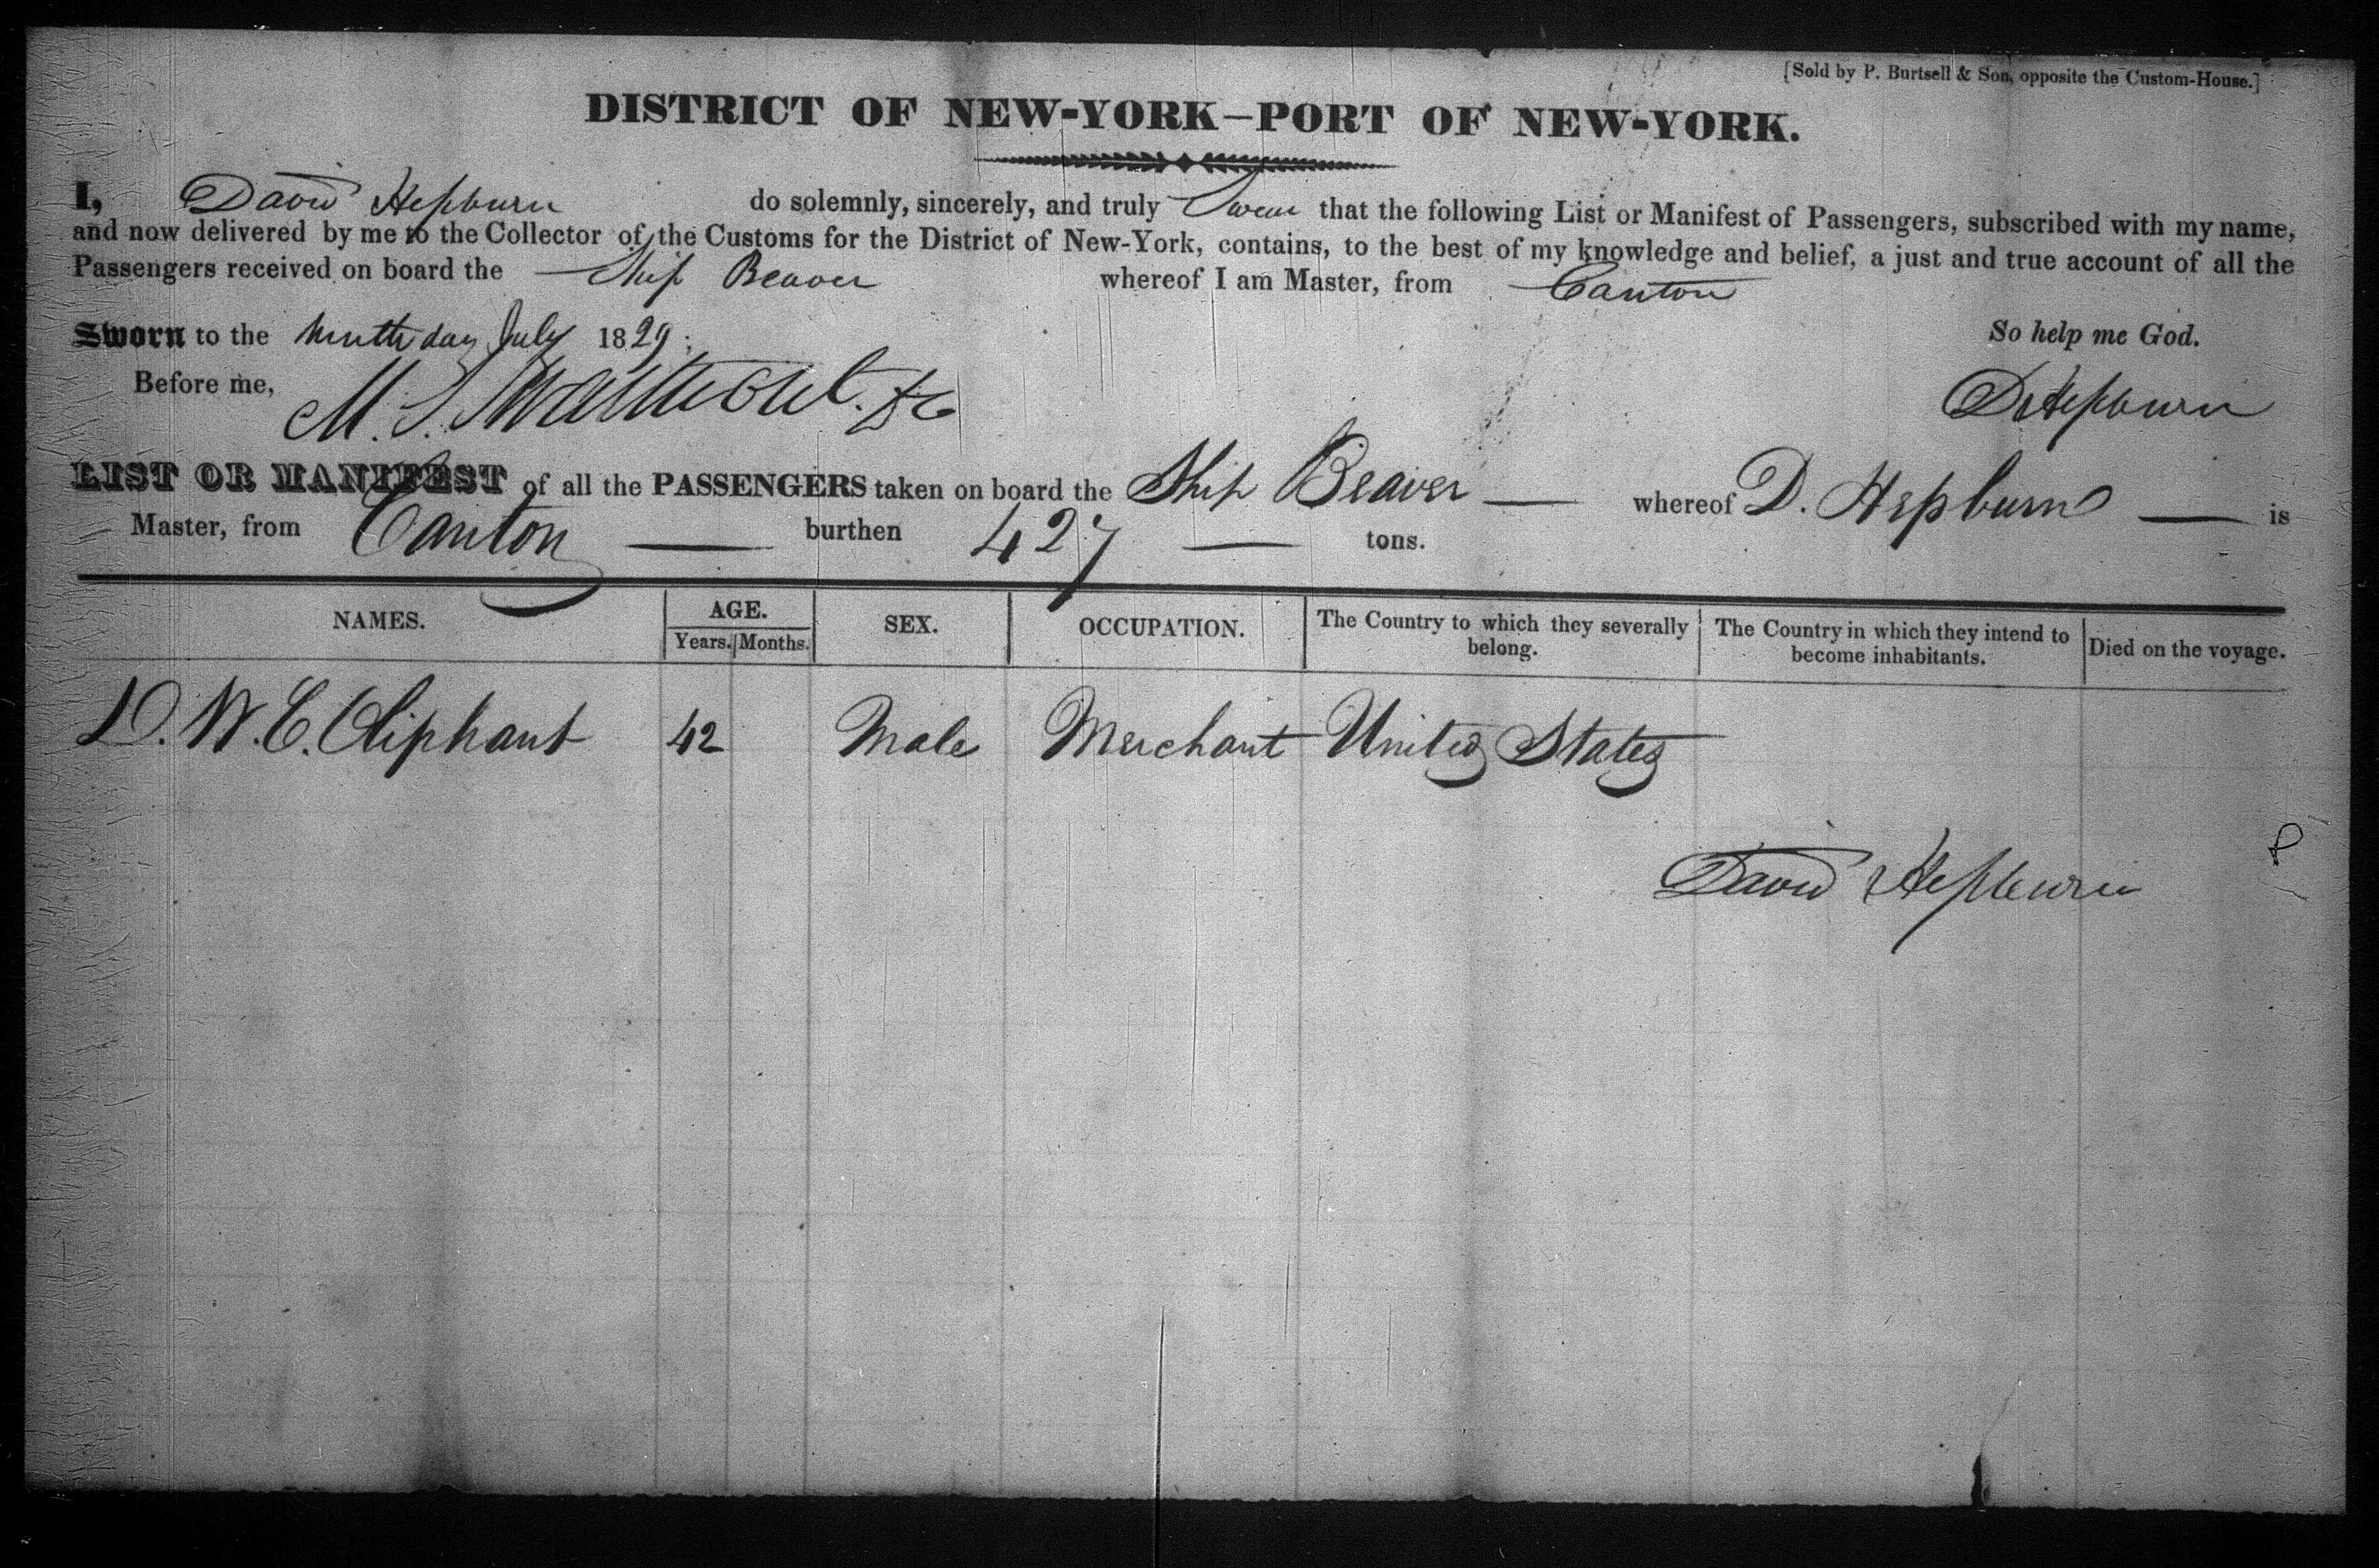 [Sold by P. Burtsell & Son, opposite the Custom-House.]
DISTRICT OF NEW-YORK—PORT OF NEW-YORK.
I, David Hepburn do solemnly, sincerely, and truly Swear that the following List or Manifest of Passengers, subscribed with my name,
and now delivered by me to the Collector of the Customs for the District of New-York, contains, to the best of my knowledge and belief, a just and true account of all the
Passengers received on board the Ship Beaver whereof I am Master, from Canton
So help me God.
Sworn to the Ninth day July 1829.
Before me, M. S. Swartwout
D Hepburn
LIST OR MANIFEST of all the PASSENGERS taken on board the Ship Beaver — whereof D. Hepburn — is
Master, from Canton — burthen 427 — tons.
NAMES. AGE. Years. Months. SEX. OCCUPATION. The Country to which they severally belong. The Country in which they intend to become inhabitants. Died on the voyage.
D. W. C. Oliphant 42 Male Merchant United States
David Hepburn